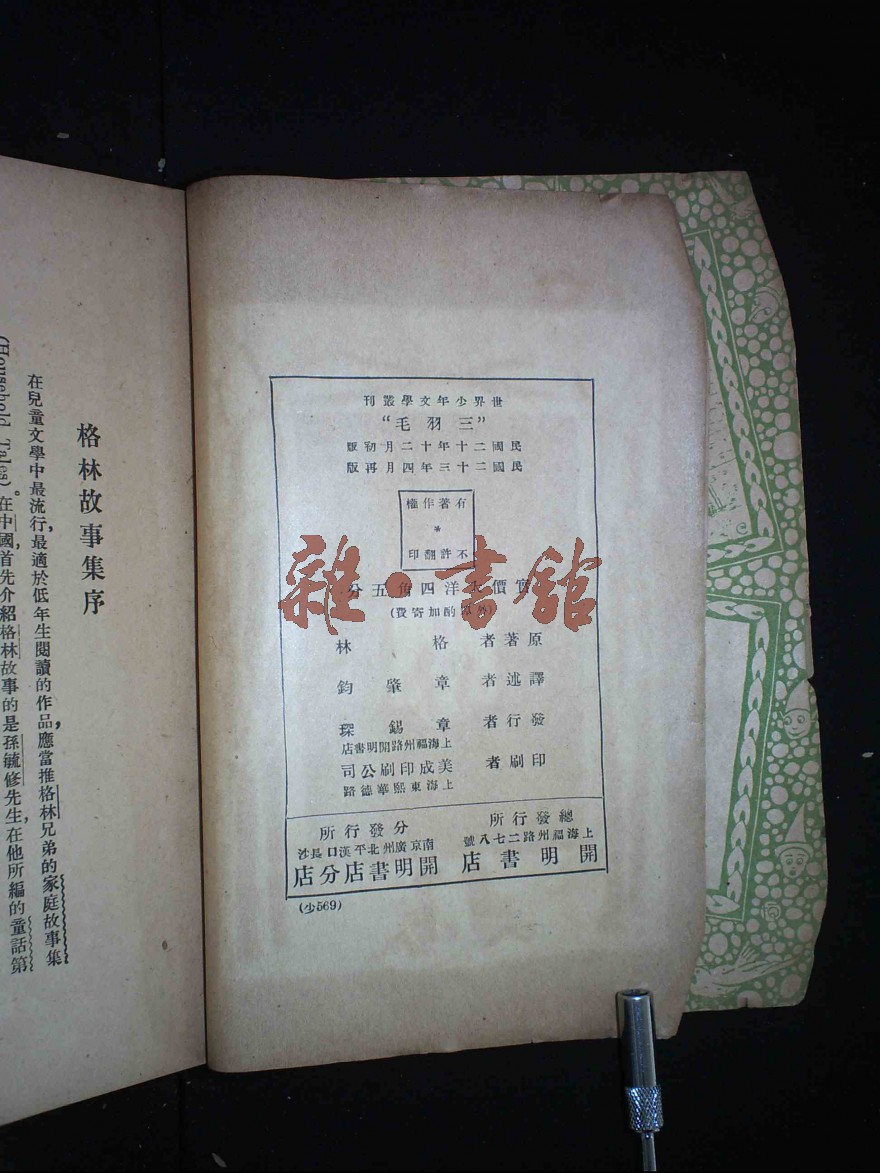 世界少年文學叢刊
“三羽毛”
民國二十年十二月初版
民國二十三年四月再版
有著作權
不許翻印
雜·書館
實價大洋四角五分
(外埠酌加寄費)
原著者 格林
譯述者 章肇鈞
發行者 章錫琛
上海福州路開明書店
印刷者 美成印刷公司
上海東熙華德路
總發行所
上海福州路二七八號
開明書店
分發行所
南京廣州北平漢口長沙
開明書店分店
(少569)
格林故事集序
在兒童文學中最流行,最適於低年生閱讀的作品,應當推格林兄弟的家庭故事集
(Household Tales)。在中國,首先介紹格林故事的是孫毓修先生,在他所編的童話第